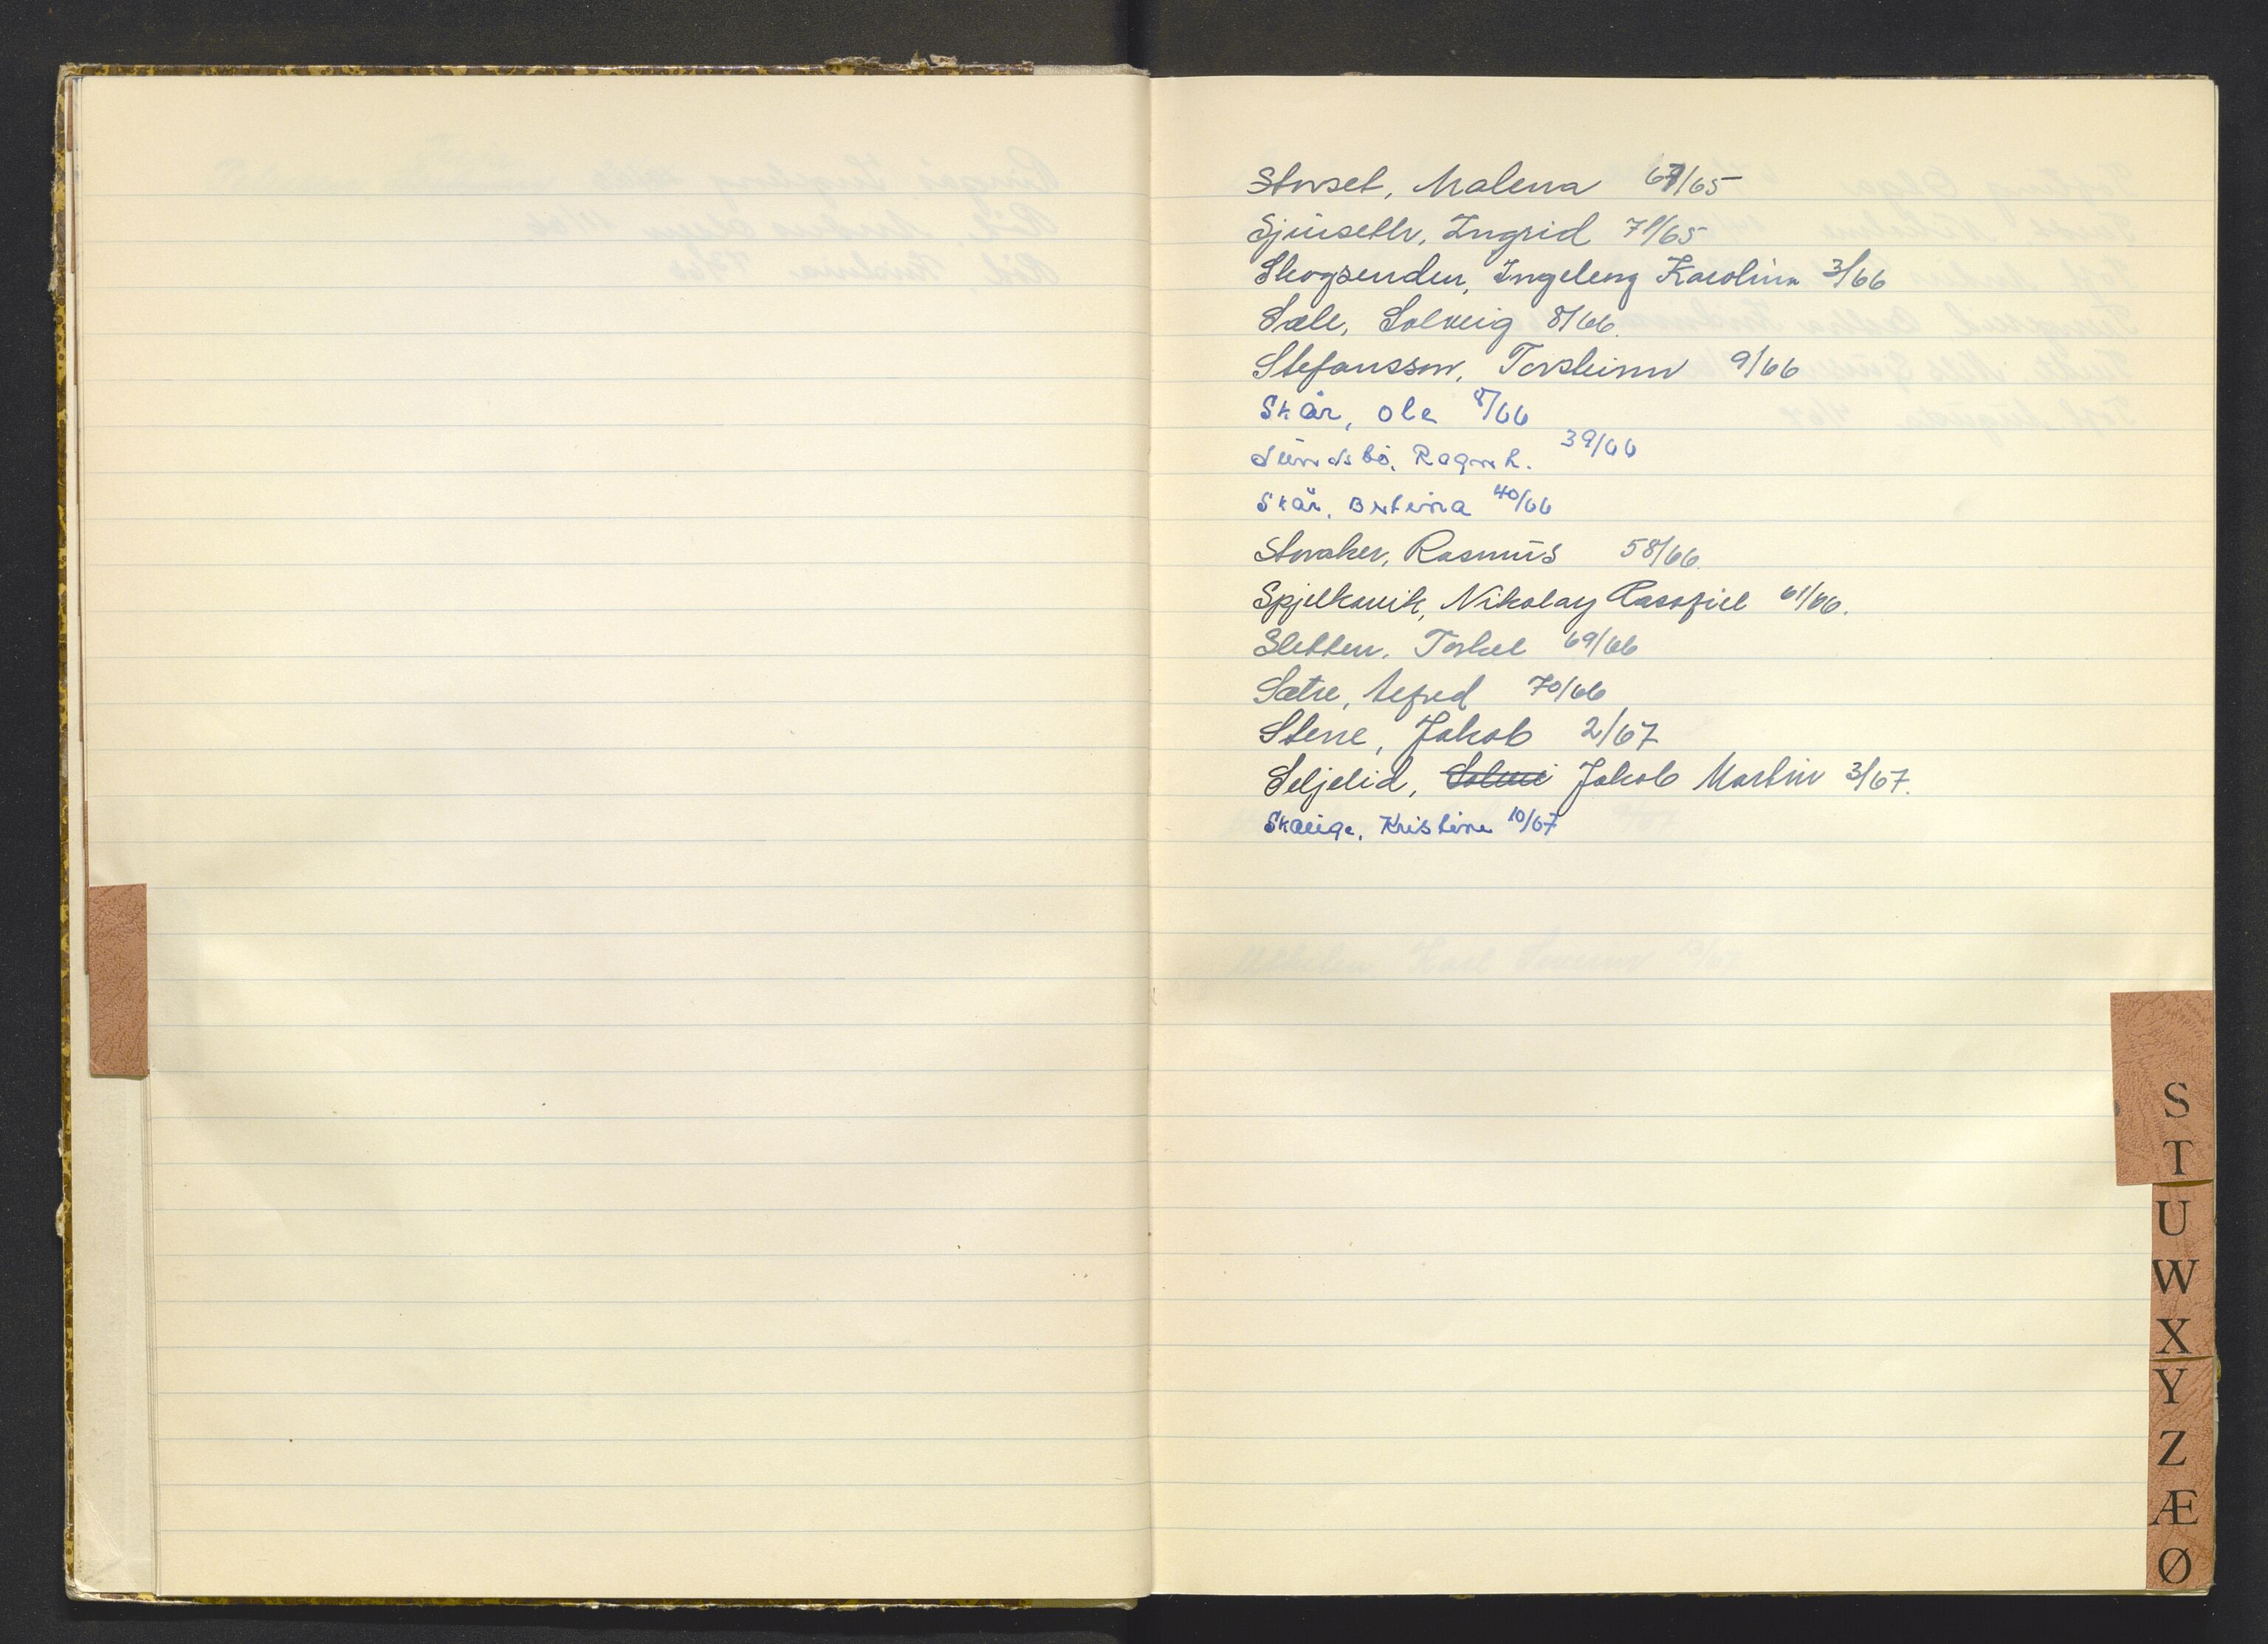 Storset, Malena 67/65
Sjursether, Ingrid 71/65
Skogsenden, Ingeborg Karolina 3/66
Sale, Solveig 8/66
Stefansson, Torsteinn 9/66
Skår, Ole 8/66
Sundsbö, Ragnh. 39/66
Skår, Bertina 40/66
Storaker, Rasmus 58/66.
Spjelkavik, Nikolay 61/66.
Sletten, Torkel 69/66
Sætre, Alfred 70/66
Stene, Jakob 2/67
Seljelid, Jakob Martin 3/67.
Skauge, Kristine 10/67
S
T
U
W
X
Y
Z
Æ
Ø